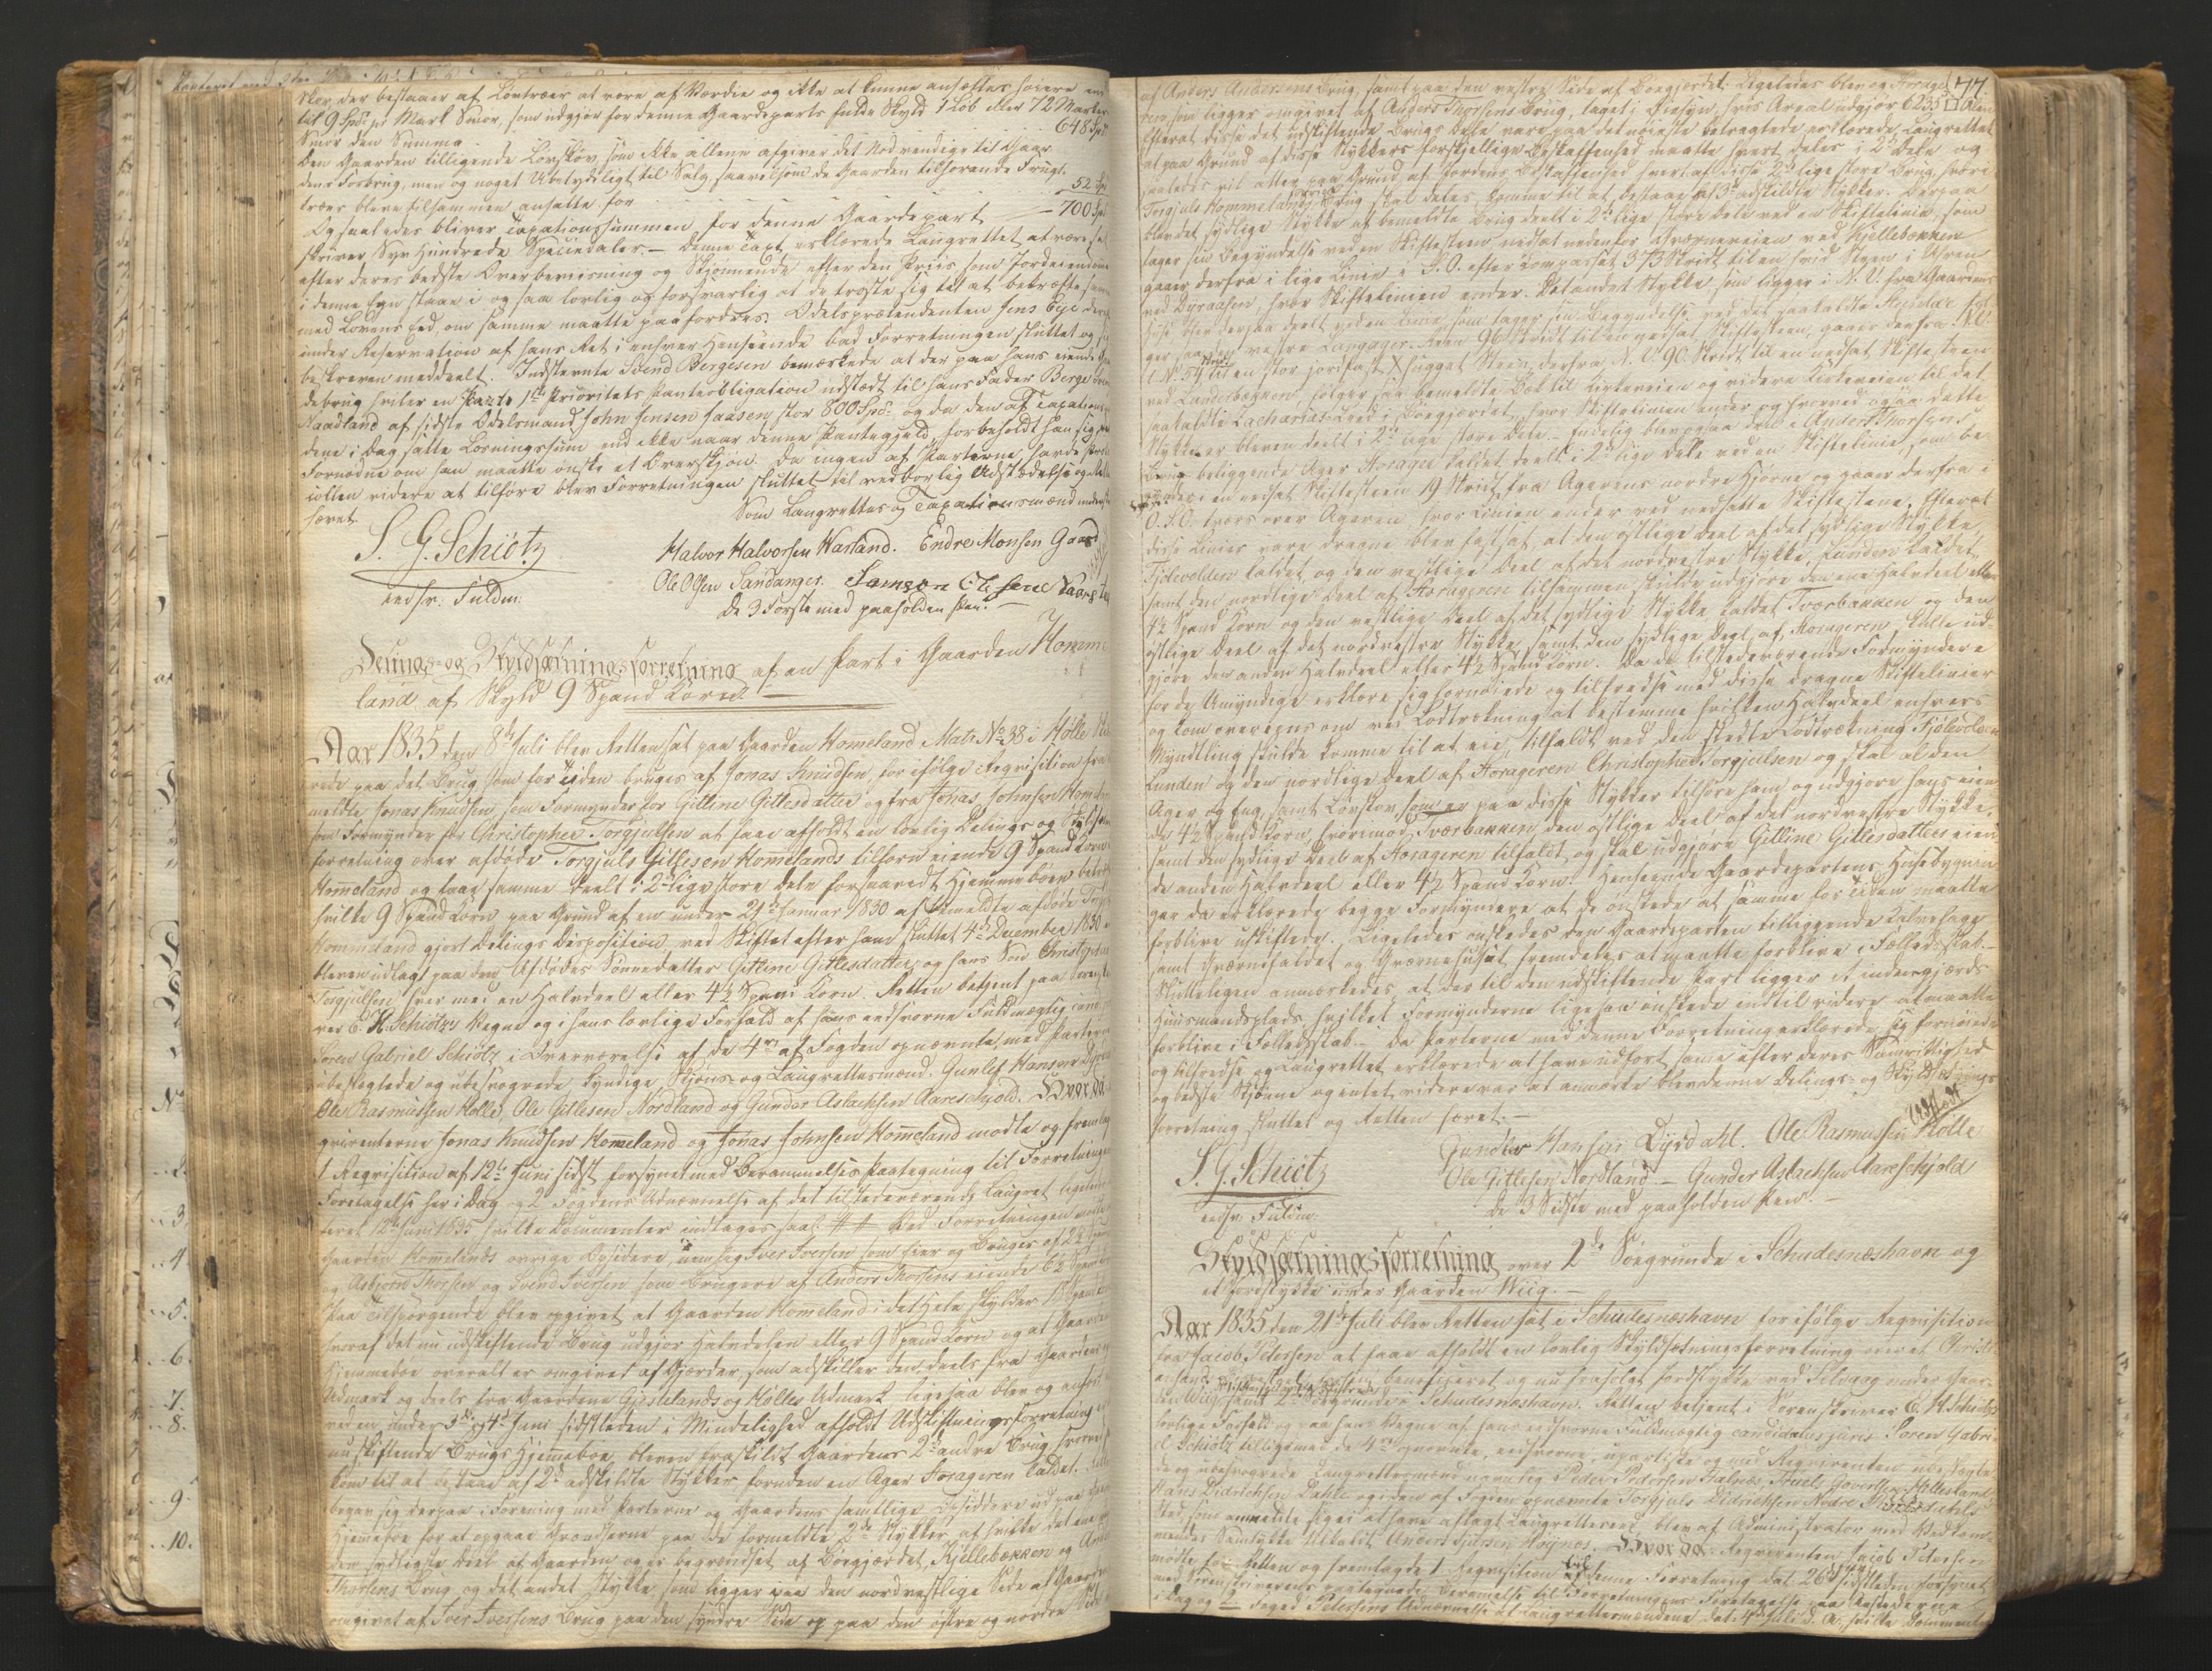 Skov, der bestaaer af Løvtræer at være af Værdie og ikke at kunne ansættes høiere end
til 9 Spd. pr Mark Smør, som udgjør for denne Gaardeparts fulde Skyld 1 Løb eller 72 Marker
Smør den Summa 648 Spd
Den Gaarden tilliggende Lovskov, som ikke allene afgiver det Nødvendige til Gaar-
dens Forbrug, men og noget Ubetydeligt til Salg, saavelsom de Gaarden tilhørende Frugt-
træer bleve tilsammen ansatte for 52 Spd
Og saaledes bliver Taxationssummen for denne Gaardepart 700 Spd
skriver Syv Hundrede Speciedaler. Denne Taxt erklærede Laugrettet at være sat
efter deres bedste Overbeviisning og Skjønnende efter den Priis som Jordeiendomme
i denne Egn staae i og saa lovlig og forsvarlig at de trøste sig til at bekræfte samme
med Lovens Eed, om samme maatte paafordres. Odelsprætendenten Jens Eye
under Reservation af hans Ret i enhver Henseende bad Forretningen sluttet og
beskreven meddeelt. Indstevnte Svend Børgesen bemærkede at der paa hans eiende Gaar-
debrug hviler en 1ste Prioritets Panteobligation udstædt til hans Fader Berge
Naadland af sidste Odelsmand John Jensen Saasen, stor 800 Spd og da den af Taxations-
dene i Dag satte Løsningssum end ikke naar denne Pantegjæld, forbeholdt han sig
Fornødne om han maatte ønske et Overskjøn. Da ingen af Parterne havde
videre at tilføre blev Forretningen sluttet til vedbørlig Udstædelse og Retten
hævet.
Som Laugrettes og Taxationsmænd
S. G. Schiøtz
edsv. Fuldm:
Halvor Halvorsen Warland. Endre Monsen Gaard
Ole Olsen Sandanger. Samson Olesene Vaage
de 3 Første med paaholden Pen.
Delings- og Skyldsætningsforretning af en Part i Gaarden Homme
land af Skyld 9 Spand Korn.
Aar 1835 den 8de Juli blev Retten sat paa Gaarden Homeland Matr. No 38 i Holle
rede paa det Brug som for Tiden bruges af Jonas Knudsen, for ifølge Reqvisition fra
meldte Jonas Knudsen, som Formynder for Gitline Gitlesdatter og fra Jonas Johnsen Homeland
som Formynder for Christopher Torgjulsen at faae afholdt en lovlig Delings og
forretning over afdøde Torgjuls Gitlesen Homelands tilforn eiende 9 Spand Korn
Homeland og faae samme deelt i 2de lige store Dele forsaavidt Hjemmebøen
hvilke 9 Spand Korn paa Grund af en under 21de Januar 1830 af bemeldte afdøde
Hommeland gjort Delings Disposition, ved Skiftet efter ham sluttet 4de December 1830
bleven udlagt paa den Afdødes Sønnedatter Gitline Gitlesdatter og hans Søn Christopher
Torgjulsen hver med en Halvdeel eller 4½ Spand Korn. Retten betjent paa Soren-
ver E. H. Schiøtz's Vegne og i hans lovlige Forfald af hans eedsvorne Fuldmægtig
Søren Gabriel Schiøtz, i Overværelse af de 4re af Fogden opnævnte, med Parterne
ubeslægtede og ubesvogrede, kyndige Skjøns- og Laugrettesmænd, Gunlef Hansen
Ole Rasmussen Holle, Ole Gitlesen Nordland og Gunder Aslachsen Aareschjold. Hvor da
qvirenterne Jonas Knudsen Homeland og Jonas Johnsen Homeland mødte og fremlagde
1. Reqvisition af 12te Juni sidst, forsynet med Berammelses Paategning til Forretningens
Foretagelse her i Dag. 2 Fogdens Udnævnelse af det tilstedeværende Laugret ligeledes
teret 12te Juni 1835 hvilke Documenter indtages saal: ## Ved Forretningen mødte
Gaarden Homelands øvrige Opsiddere, nemlig Iver Iversen som eier og bruger af 2½ Spand
og Asbjørn Thorsen og Svend Iversen som Brugere af Anders Thorsens eiende 6½ Spand
Paa Tilspørgende blev opgivet at Gaarden Homeland i det Hele skylder 18 Spand
hvoraf det nu udskiftende Brug udgjør Halvdelen eller 9 Spand Korn og at Gaardens
Hjemmebøe overalt er omgivet af Gjærder, som adskiller den deels fra Gaardens
Udmark og deels fra Gaardene Gjestelands og Holles Udmark ligesaa blev og anført
ved en under 3die og 4de Juni sidstleden i Mindelighed afholdt Udskiftningsforretning
nu skiftende Brugs Hjemmebøe, bleven fraskildt Gaardens 2de andre Brug, hvorved
kom til at bestaae af 2de adskildte Stykker, foruden en Ager Horageren kaldet.
begav sig derpaa i Forening med Parterne og Gaardens samtlige Opsiddere ud paa
Hjemmebøe for at opgaae Grændserne paa de formeldte 2de Stykker, af hvilke det ene
den sydligste Deel af Gaarden, og er begrændset af Bøegjærdet, Kjellebækken og
Thorsens Brug og det andet Stykke, som ligger paa den nordvestlige Side af Gaarden
omgivet af Iver Iversens Brug paa den syndre Side og paa den østre og nordre Side
77
af Anders Andersens Brug, samt paa den vestre Side af Bøegjærdet. Ligeledes blev og Horage-
ren, som ligger omgivet af Anders Thorsens Brug, taget i Øiesyn, hvis Areal udgjør 6235 □ Alen
Efterat disse det udskiftende Brugs Dele vare paa det nøieste betragtede erklærede Laugrettet
at paa Grund af disse Stykkers forskjellige Beskaffenhed maatte hvert deles i 2de Dele og
saaledes vil atter paa Grund af Jordens Beskaffenhed hvert af disse 2de lige store Brug, hvori
Torgjuls Hommelands forrige Brug skal deles, komme til at bestaae af 3de adskildte Stykker. Derpaa
blev det sydlige Stykke af bemeldte Brug deelt i 2de lige store Dele ved en Skiftelinie, som
tager sin Begyndelse ved en Skiftesteen nedsat nedenfor Qværneveien ved Kjellebækken
gaaer derfra i lige Linie i S. O. efter Compasset 373 Skridt til en hvid Steen i Uhren
ved Dyraasen, hvor Skiftelinien ender. Det andet Stykke, som ligger i N. V. fra Gaardens
Huse blev derpaa deelt ved en Linie, som tager sin Begyndelse ved det saakaldte
vestre Langager. 96 Skridt til en nedsat Skiftesteen, gaaer derfra N. V.
t. N. 54 Skridt til en stor jordfast X hugget Steen, derfra N. V. 90 Skridt til en nedsat Skiftesteen
ved Lundebækken, følger saa bemeldte Bæk til Kirkeveien og videre Kirkeveien til det
saakaldte Zacharias-Leed i Bøegjærdet, hvor Skiftelinien ender og hvorved ogsaa dette
Stykke er bleven deelt i 2de lige store Dele. Endelig blev ogsaa den i Anders Thorsens
Brug beliggende Ager Horager kaldet deelt i 2de lige Dele ved en Skiftelinie, som be-
gynder i en nedsat Skiftesteen 19 Skridt fra Agerens nordre Hjørne og gaaer derfra i
O. S. O. tværs over Ageren, hvor Linien ender ved nedsatte Skiftestene. Efterat
disse Linier vare dragne blev fastsat, at den østlige Deel af det sydlige Stykke
Fjolevolden kaldet, og den vestlige Deel af det nordvestre Stykke, Lunden kaldet,
samt den nordlige Deel af Horageren tilsammen skulde udgjøre den ene Halvdeel eller
4½ Spand Korn og den vestlige Deel af det sydlige Stykke kaldet Tværbakken og den
østlige Deel af det nordvestre Stykke samt den sydlige Deel af Horageren, skulde ud-
gjøre den anden Halvdeel eller 4½ Spand Korn. Da de tilstedeværende Formyndere
for de Umyndige erklære sig fornøiede og tilfredse med disse dragne Skiftelinier
og kom overeens om ved Lodtrækning at bestemme hvilken Halvdeel enhvers
Myndtling skulde komme til at eie, tilfaldt ved den skedte Lodtrækning Fjolevolden
Lunden og den nordlige Deel af Horageren Christopher Torgjulsen og skal al den
Ager og Eng, samt Løvskov, som er paa disse Stykker tilhøre ham og udgjøre hans eien-
de 4½ Spand Korn, hvorimod Tværbakken, den østlige Deel af det nordvestre Stykke,
samt den sydlige Deel af Horageren tilfaldt, og skal udgjøre Gitline Gitlesdatters eien-
de anden Halvdeel eller 4½ Spand Korn. Henseende Gaardepartens Husebygnin-
ger da erklærede begge Formyndere at de ønskede at samme for Tiden maatte
forblive uskiftede. Ligeledes ønskedes den Gaardeparten tilliggende Kalvehage
samt Qværnefaldet og Qværnehuset fremdeles at maatte forblive i Fælledsskab.
Sluttelligen anmærkedes, at der til den udskiftende Part ligger et indengjærds
Huusmandsplads, hvilket Formynderne ligesaa ønskede indtil videre at maatte
forblive i Fælledsskab. Da Parterne med denne Forretning erklærede sig fornøiede
og tilfredse og Laugrettet erklærede at have udført samme efter deres Samvittighed
og bedste Skjønne og intet videre var at anmærke blev denne Delings- og Skyldsætnings-
forretning sluttet og Retten hævet.
Udstædt
S. G. Schiøtz
edsv: Fuldm:
Gundlev Hansen Dyrdahl. Ole Rasmussen Holle
Ole Gitlesen Nordland – Gunder Aslachsen Aareschjold
de 3 Sidste med paaholden Pen.
Skyldsætningsforretning over 2de Søegrunde i Schudesnæshavn og
et Jordstykke under Gaarden Wiig.
Aar 1835 den 21de Juli blev Retten sat i Schudesnæshavn for ifølge Reqvisition
fra Jacob Petersen at faae afholdt en lovlig Skyldsætningsforretning over et
beneficeret og nu frasolgt Jordstykke ved Silvaag under Gaar-
den Wiig, samt 2de Søegrunde i Schudesnæshavn. Retten betjent i Sorenskriver E. H. Schiøtz's
lovlige Forfald og paa hans Vegne af hans eedsvorne Fuldmægtig candidatus juris Søren Gabri-
el Schiøtz tilligemed de 4re opnævnte, eedsvorne, upartiske og med Reqvirenten ubeslægte-
de og ubesvogrede Laugrettesmænd navnlig Peder Pedersen Falnæs, Govertsen Hillesland,
Hans Didrichsen Dahle og i den af Fogden opnævnte Torgjuls Didrichsen Nedre
Sted, som anmeldte sig ei at have aflagt Laugretteseed, blev af Administrator med Vedkom-
mendes Samtykke tilkaldt Anders Høynæs. Hvor da Reqvirenten Jacob Petersen
mødte for Retten og fremlagde 1 Reqvisition til denne Forretning dat. 26de sidstleden forsynet
med Sorenskriverens paategnede Berammelse til Forretningens Foretagelse paa Aastederne
i Dag og Foged Petersens Udnævnelse af Laugrettesmændene dat. 4de Juli d. A. hvilke Documenter